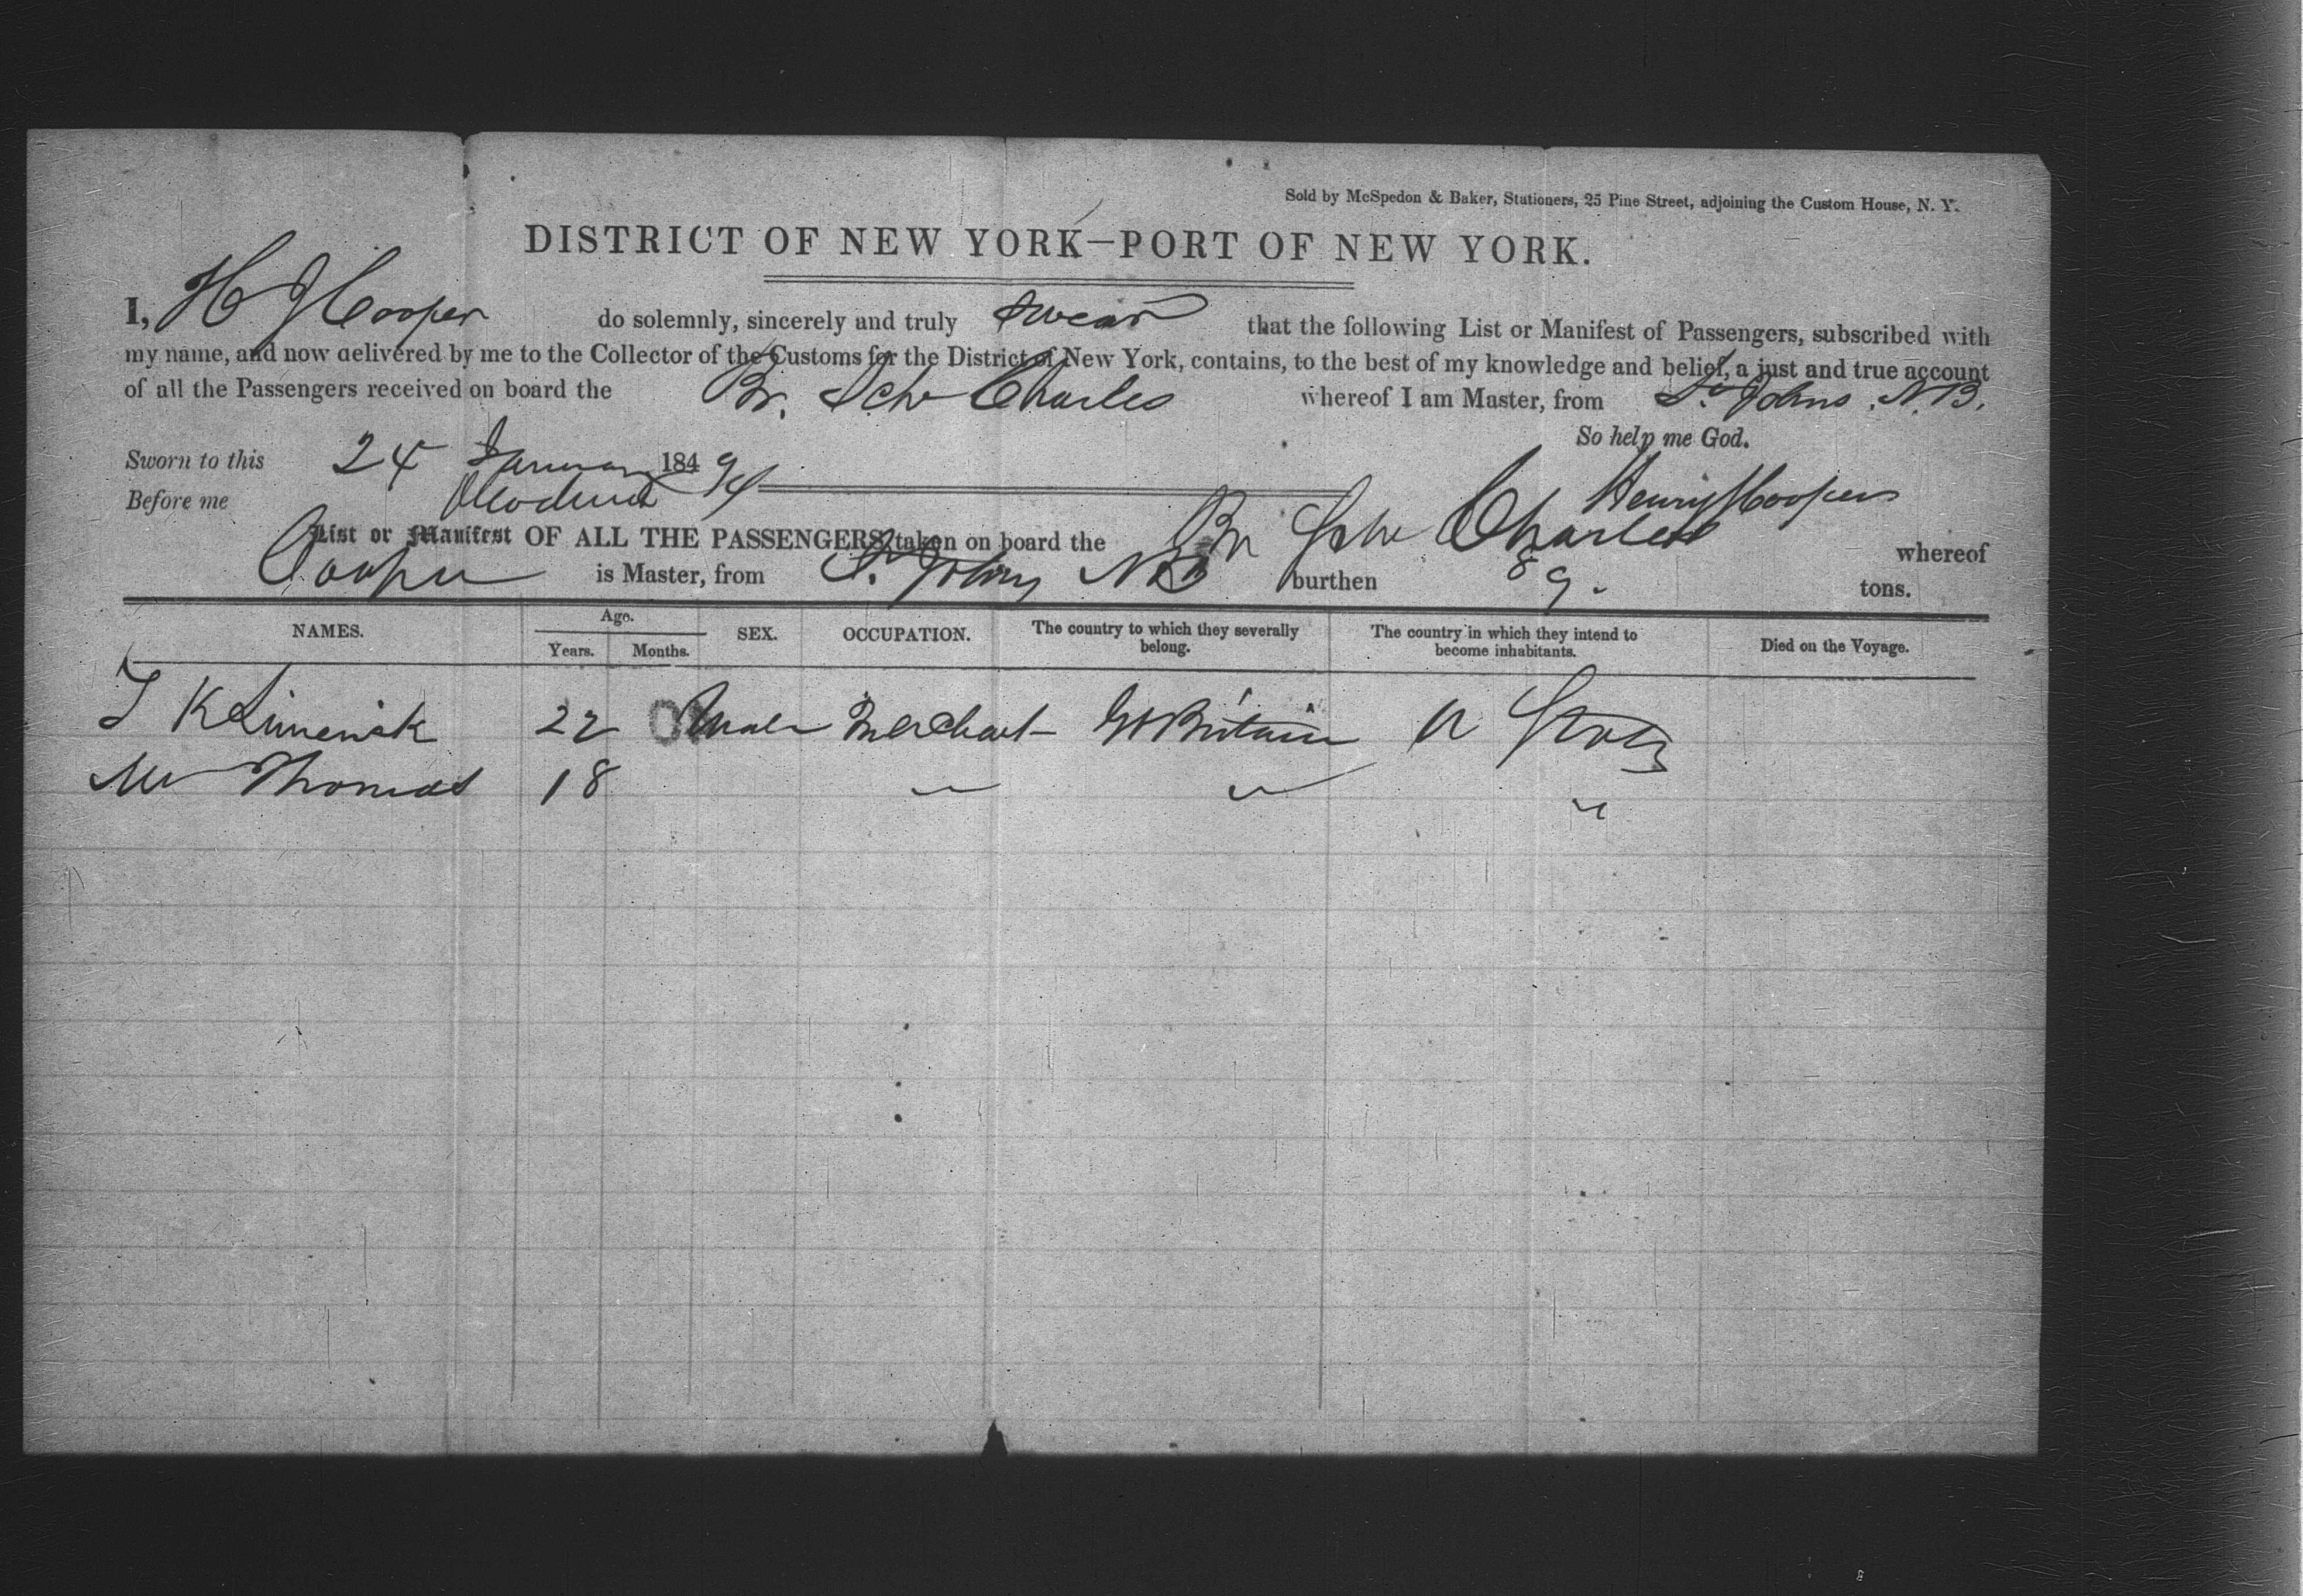 Sold by McSpedon & Baker, Stationers, 25 Pine Street, adjoining the Custom House, N. Y.
DISTRICT OF NEW YORK—PORT OF NEW YORK.
I, H J Cooper do solemnly, sincerely and truly swear that the following List or Manifest of Passengers, subscribed with
my name, and now delivered by me to the Collector of the Customs for the District of New York, contains, to the best of my knowledge and belief, a just and true account
of all the Passengers received on board the Br. Schr Charles whereof I am Master, from St. Johns, N.B.
So help me God.
Sworn to this 24 January 1849
Before me
Henry J Cooper
List or Manifest OF ALL THE PASSENGERS taken on board the Br Schr Charles whereof
Cooper is Master, from St. Johns NB burthen 89. tons.
NAMES. Age. Years. Months. SEX. OCCUPATION. The country to which they severally belong. The country in which they intend to become inhabitants. Died on the Voyage.
22 Male Merchant Gt Britain U States
Mr Thomas 18 " " "